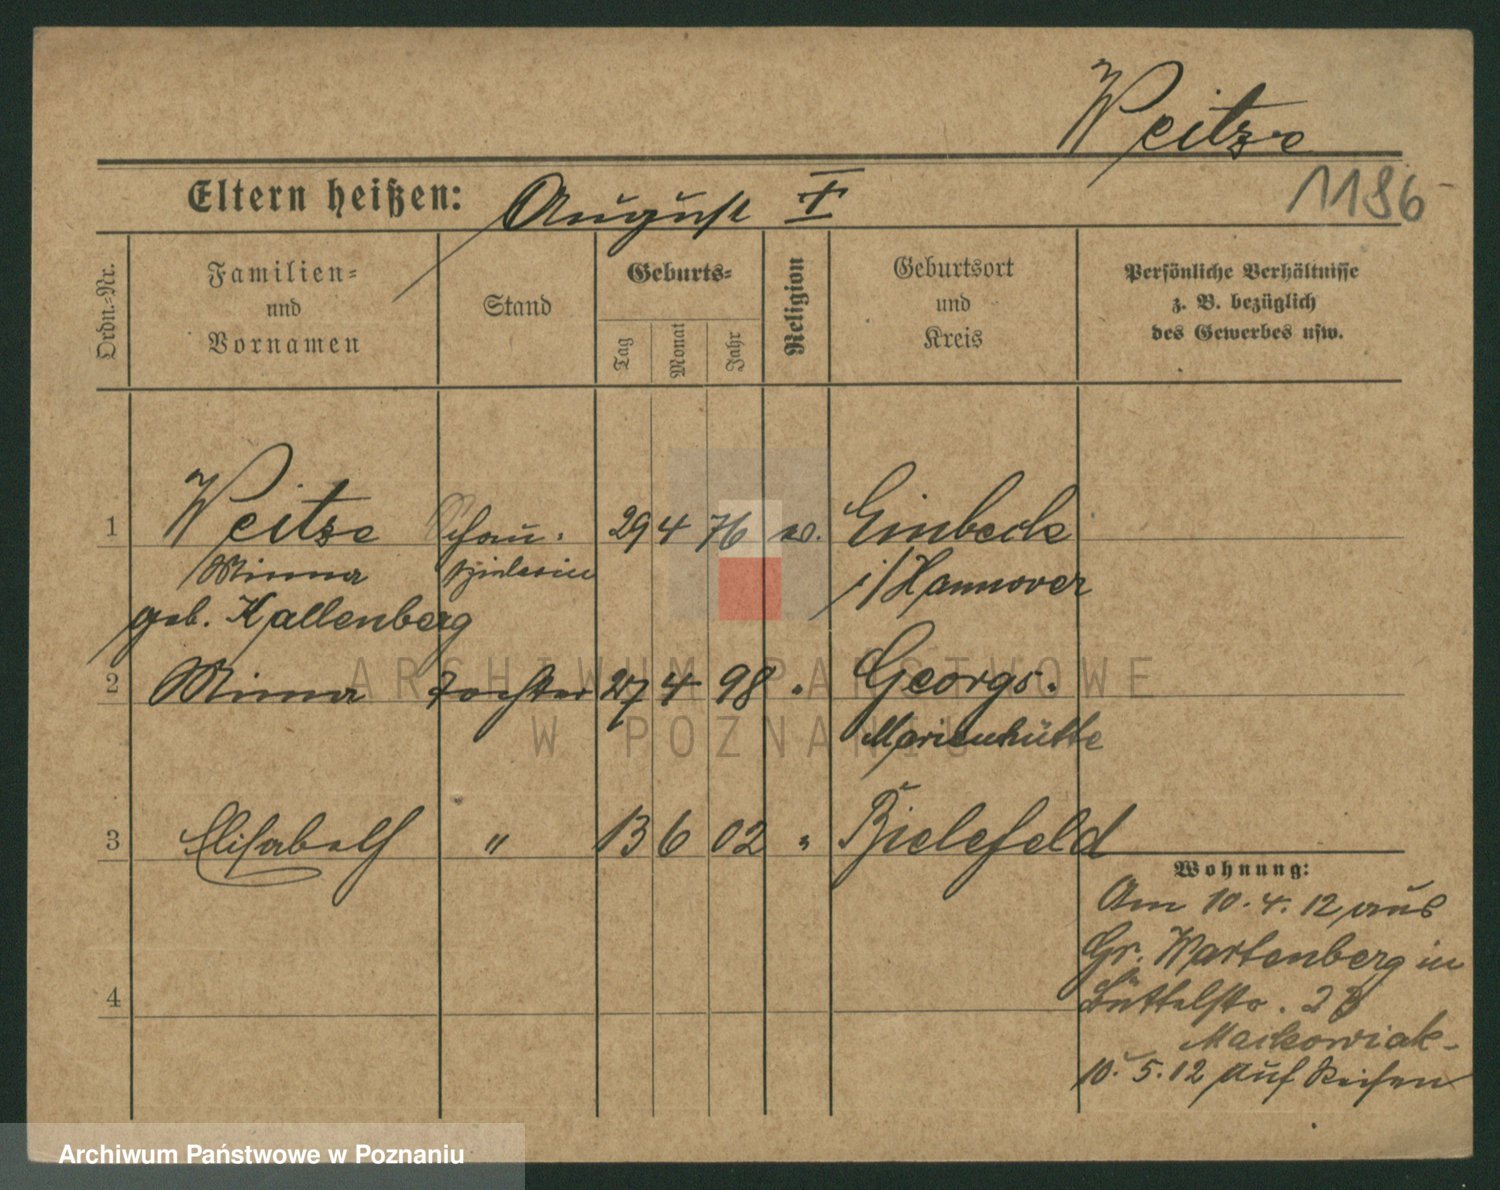 Weitze
1186
Eltern heißen: August I
Ordn.-Nr.
Familien-
und
Vornamen
Stand
Geburts-
Tag
Monat
Jahr
Religion
Geburtsort
und
Kreis
Persönliche Verhältnisse
z. B. bezüglich
des Gewerbes usw.
1 Weitze Schau- 29 4 76 ev. Einbeck
Minna spielerin i/Hannover
geb. Kallenberg
2 Minna Tochter 27 4 98 " Georgs-
Marienhütte
3 Elisabeth " 13 6 02 " Bielefeld
Wohnung:
Am 10.4.12 aus
Gr. Wartenberg in
Büttelstr. 23
Maikowiak
4
10.5.12 auf Reisen
ARCHIWUM PAŃSTWOWE
W POZNANIU
Archiwum Państwowe w Poznaniu